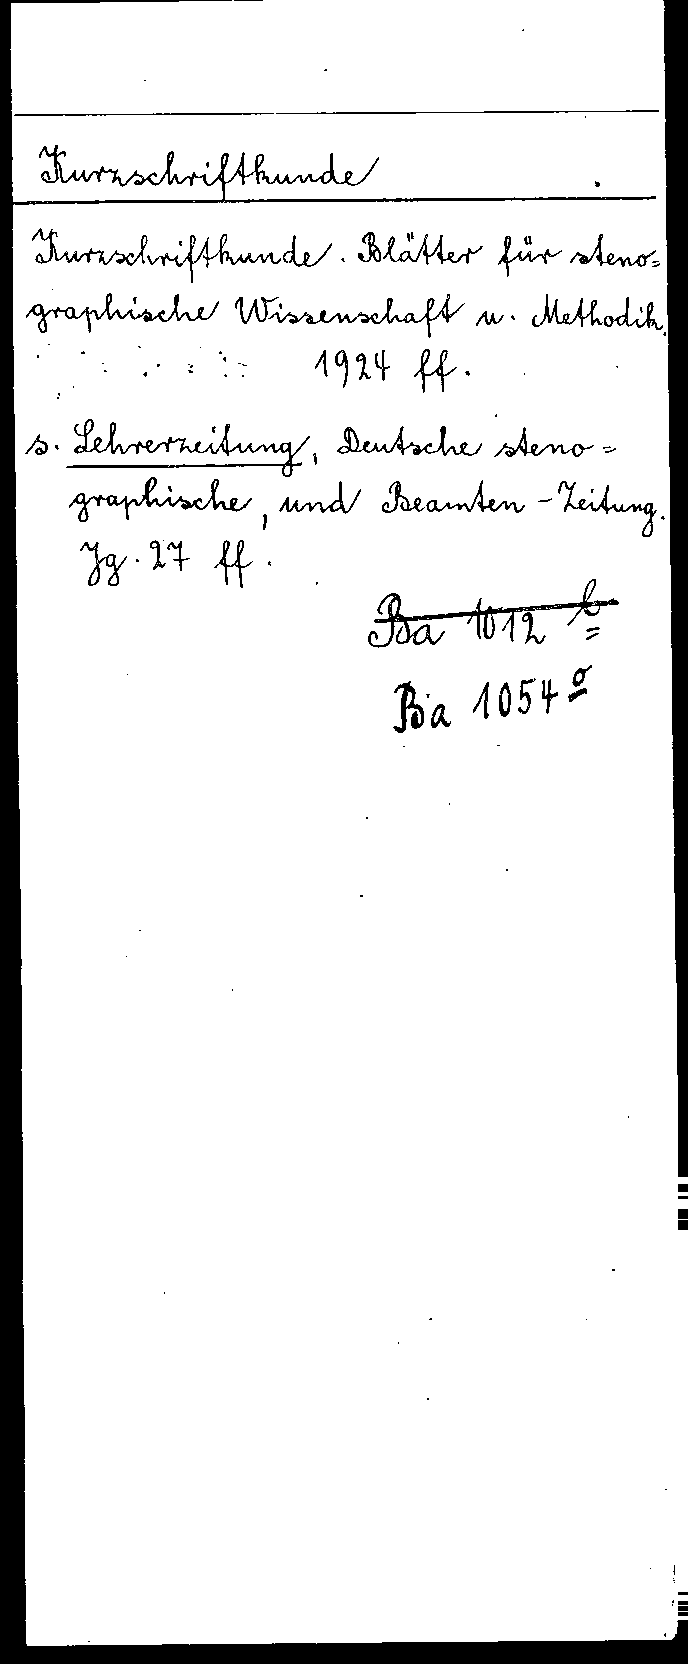 Kurzschriftkunde
Kurzschriftkunde. Blätter für steno=
graphische Wissenschaft u. Methodik.
1924 ff.
s. Lehrerzeitung, Deutsche steno=
graphische, und Beamten-Zeitung.
Jg. 27 ff.
Ba 1012 b
Ba 1054 o